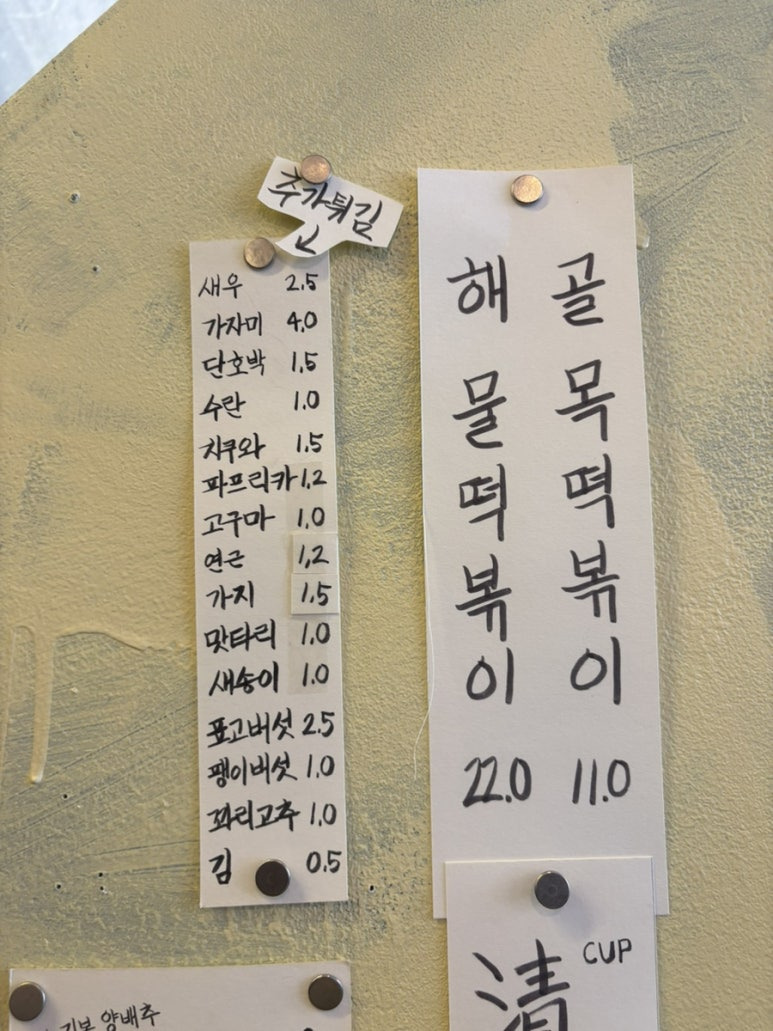 추가튀김
↓
새우 2.5
가자미 4.0
단호박 1.5
수란 1.0
치쿠와 1.5
파프리카 1.2
고구마 1.0
연근 1.2
가지 1.5
맛타리 1.0
새송이 1.0
표고버섯 2.5
팽이버섯 1.0
꽈리고추 1.0
김 0.5
골목떡볶이 11.0
해물떡볶이 22.0
清 CUP
기본 양배추